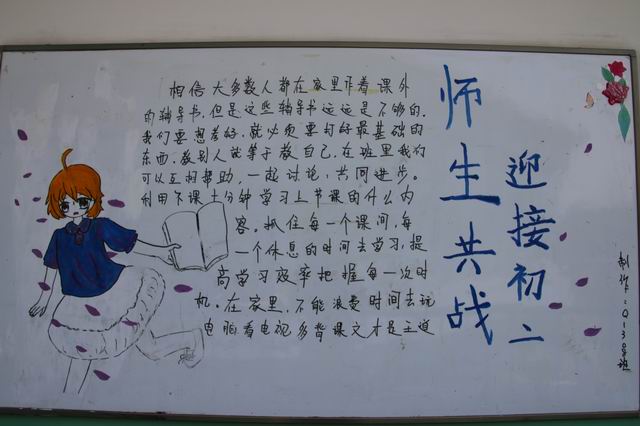 师生共战
迎接初二
相信大多数人都在家里作着课外
的辅导书,但是这些辅导书远远是不够的,
我们要想考好,就必须要打好最基础的
东西,教别人就等于教自己,在班里我们
可以互相帮助,一起讨论,共同进步。
利用下课十分钟学习上节课的什么内
容。抓住每一个课间,每
一个休息的时间去学习,提
高学习效率把握每一次时
机。在家里,不能浪费时间去玩
电脑看电视多背课文才是王道
制作:Q138班